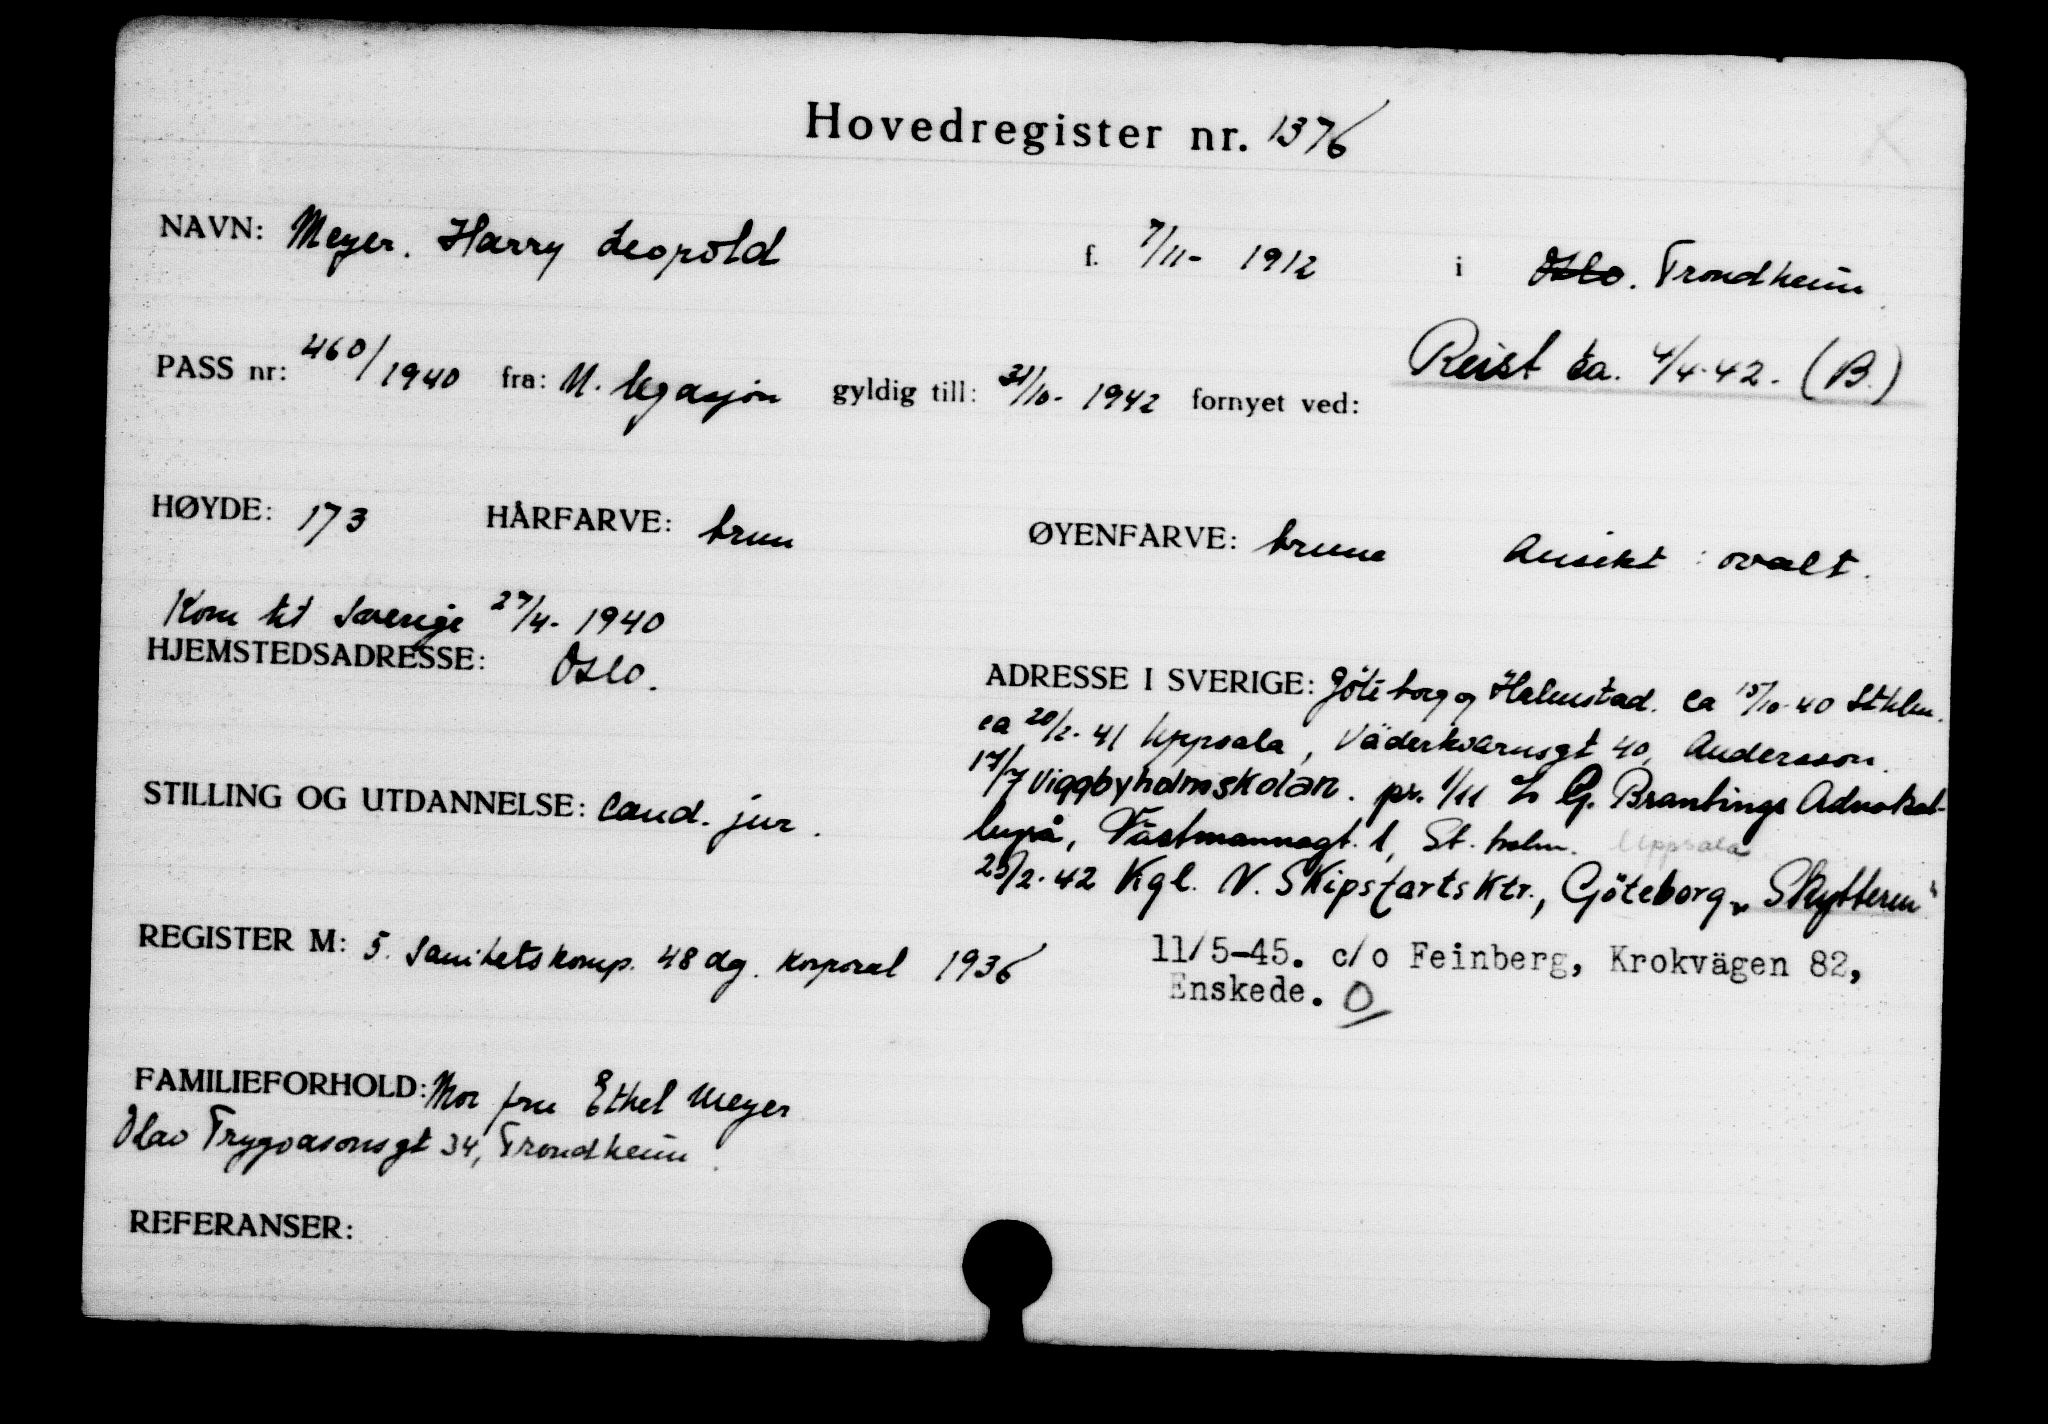 Hovedregister nr. 1376
NAVN: Meyer. Harry Leopold f. 7/11- 1912 i Oslo. Trondheim
Reist ca. 4/4-42. (B.)
PASS nr: 460/1940 fra: N. legasjon gyldig till: 31/10- 1942 fornyet ved:
HØYDE: 173 HÅRFARVE: brun ØYENFARVE: brune Ansikt: ovalt.
Kom til Sverige 27/4- 1940
HJEMSTEDSADRESSE: Oslo.
ADRESSE I SVERIGE: Göteborg og Halmstad. ca 15/10-40 Sthlm.
ca 20/2-41 Uppsala, Väderkvarnsgt 40, Andersson.
17/7 Viggbyholmskolan. pr. 1/11 G. Brantings Advokat-
byrå, Västmannagt. 1, St.holm. Uppsala
STILLING OG UTDANNELSE: Cand. jur.
25/2-42 Kgl. N. Skipsfartsktr., Göteborg „Skytteren"
REGISTER M: 5. Sanitetskomp. 48 dg. korporal 1936
11/5-45. c/o Feinberg, Krokvägen 82,
Enskede. O
FAMILIEFORHOLD: Mor fru Ethel Meyer
Olav Trygvasonsgt 34, Trondheim.
REFERANSER: